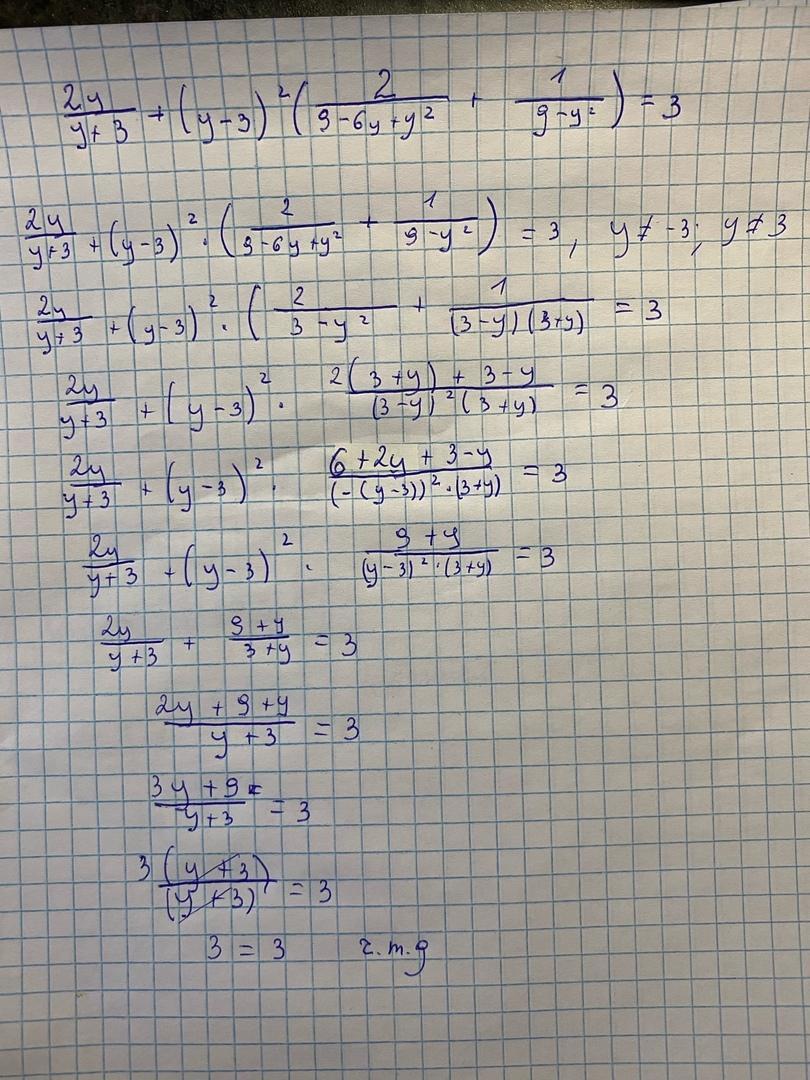 2y/(y+3) + (y-3)²(2/(9-6y+y²) + 1/(9-y²)) = 3
2y/(y+3) + (y-3)² · (2/(9-6y+y²) + 1/(9-y²)) = 3, y ≠ -3; y ≠ 3
2y/(y+3) + (y-3)² · (2/(3-y²) + 1/((3-y)(3+y)) = 3
2y/(y+3) + (y-3)² · (2(3+y) + 3-y)/((3-y)²(3+y)) = 3
2y/(y+3) + (y-3)² · (6+2y+3-y)/((-(y-3))²·(3+y)) = 3
2y/(y+3) + (y-3)² · (9+y)/((y-3)²·(3+y)) = 3
2y/(y+3) + (9+y)/(3+y) = 3
(2y+9+y)/(y+3) = 3
(3y+9)/(y+3) = 3
3(y+3)/(y+3) = 3
3 = 3 ч.т.д